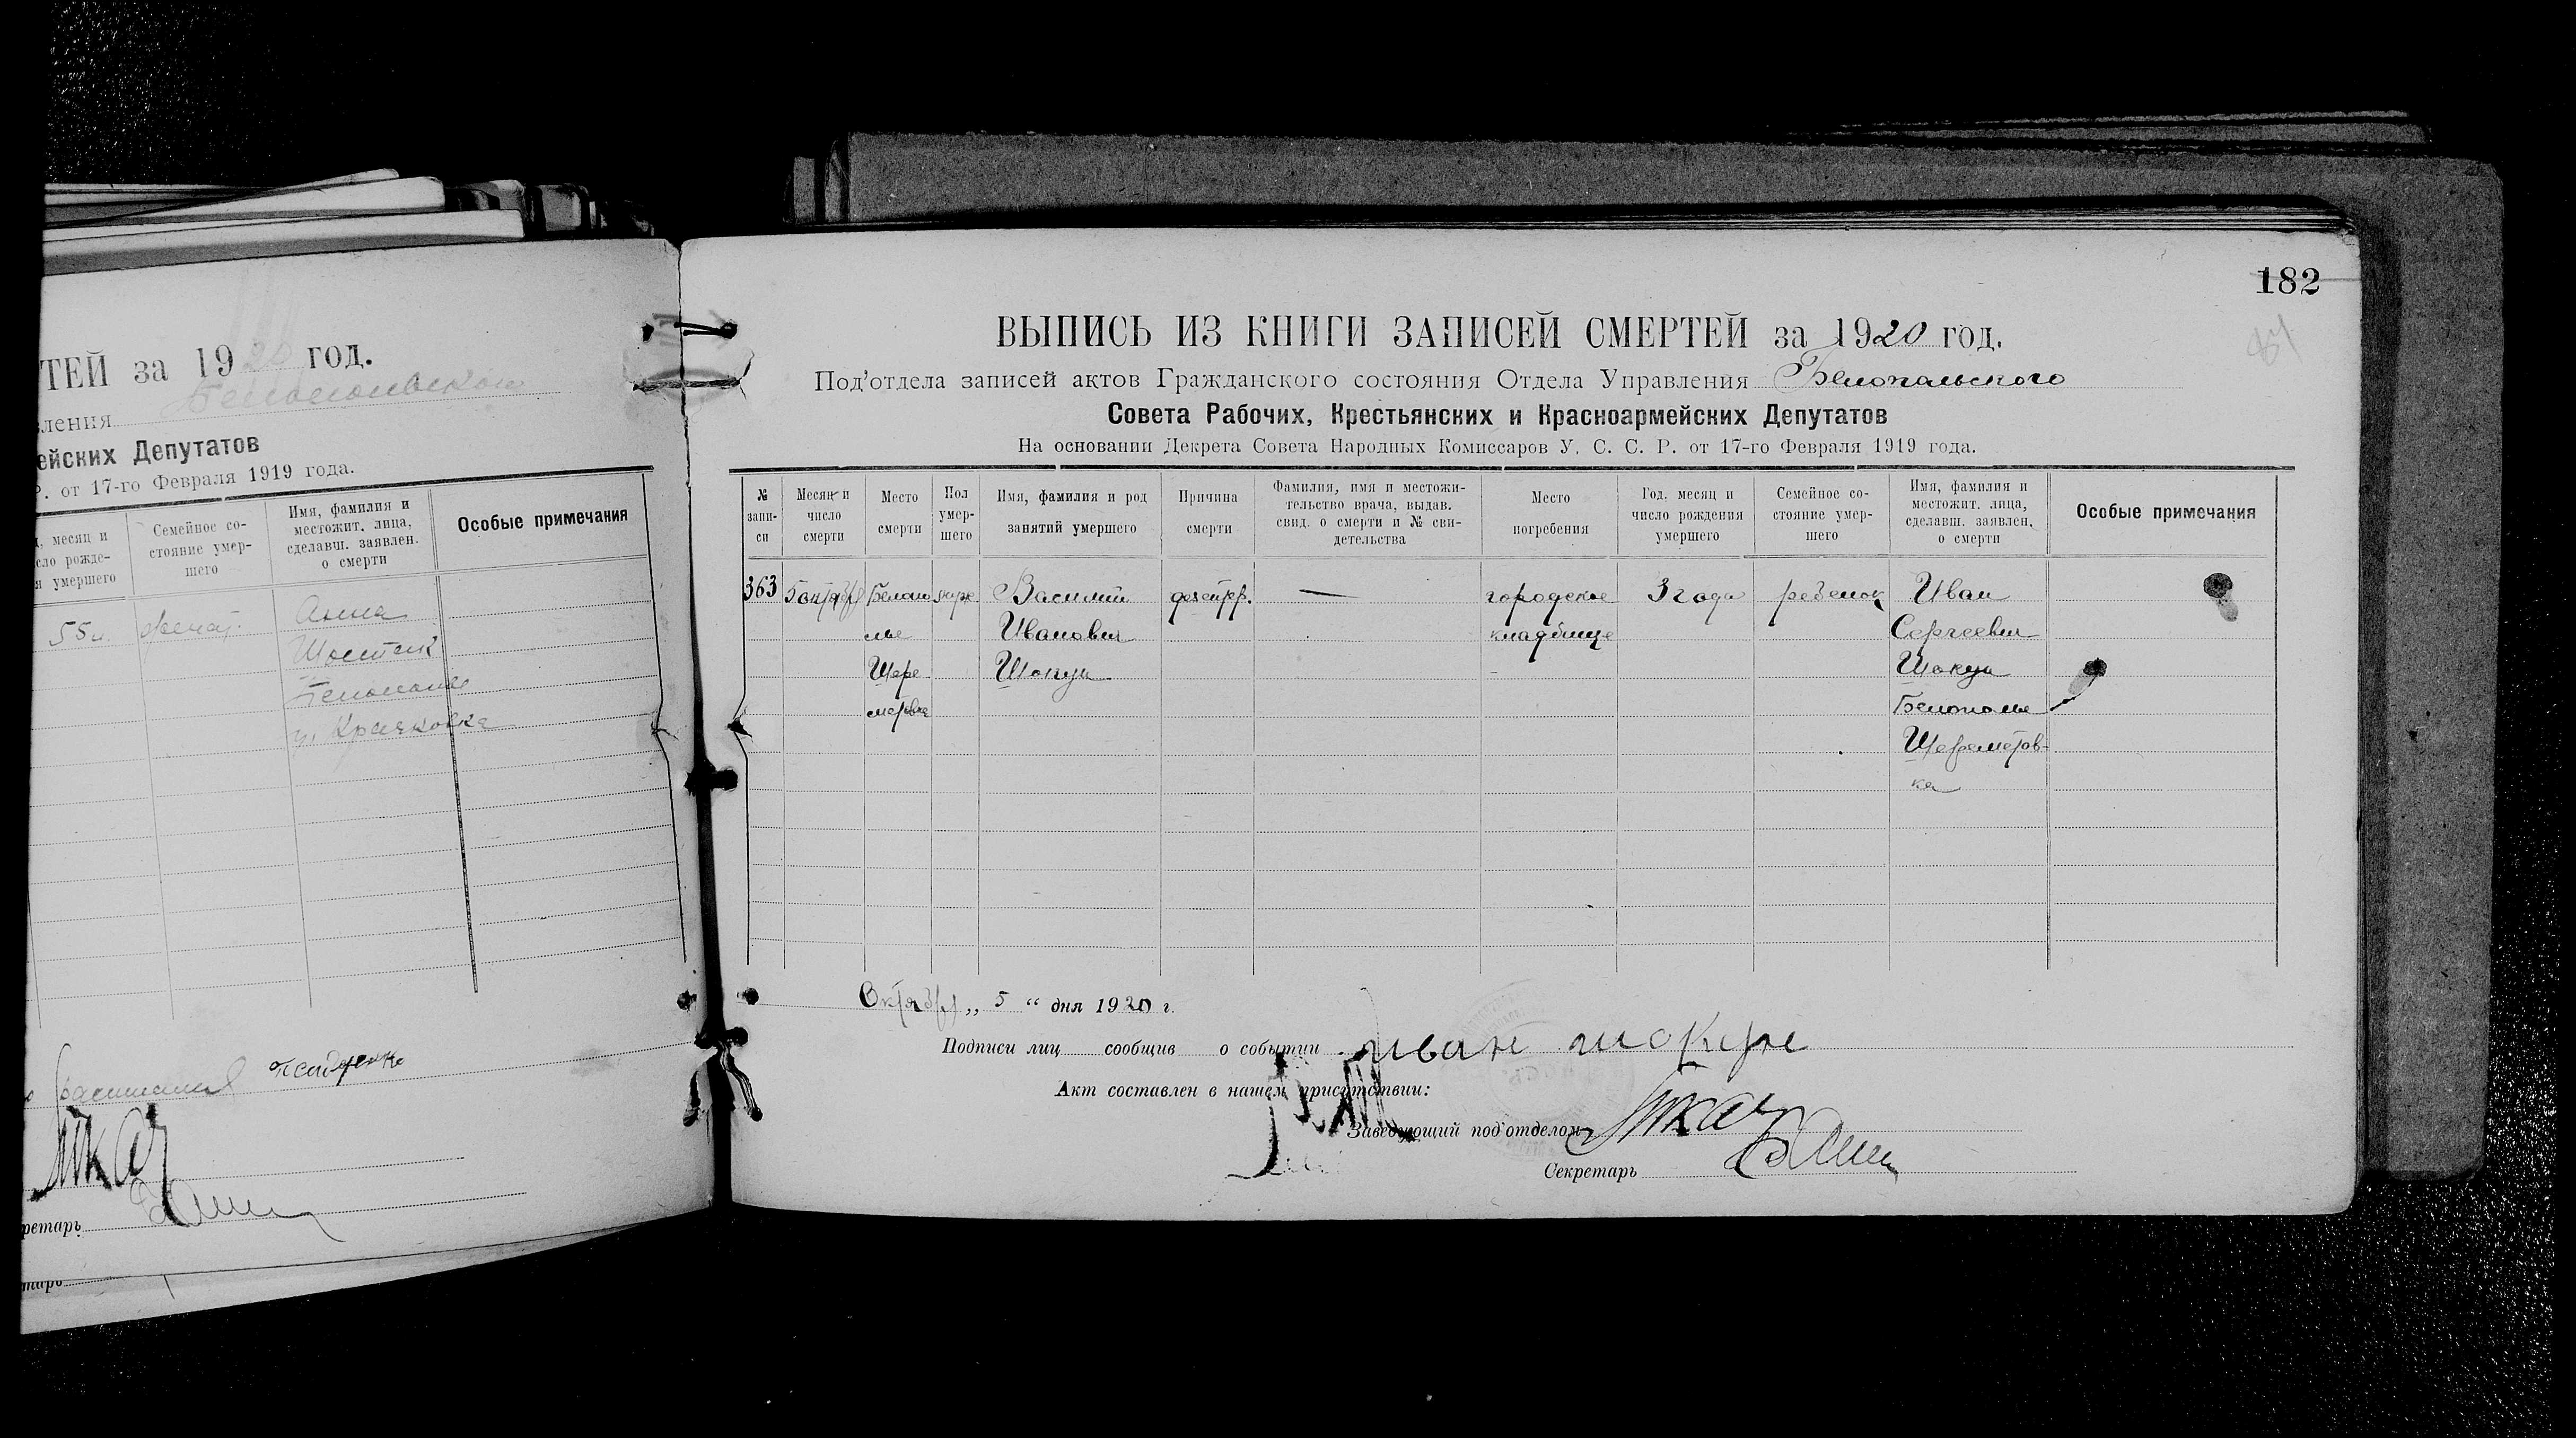 ТЕЙ за 1920 год.
вления Белопольского
ейских Депутатов
Р. от 17-го Февраля 1919 года.
д, месяц и
сло рожде-
я умершего
Семейное со-
стояние умер-
шего
Имя, фамилия и
местожит. лица,
сделавш. заявлен.
о смерти
Особые примечания
55 л. женат. Анна
Белополье
ретарь
182
ВЫПИСЬ ИЗ КНИГИ ЗАПИСЕЙ СМЕРТЕЙ за 1920 год.
Под'отдела записей актов Гражданского состояния Отдела Управления Белопольского
Совета Рабочих, Крестьянских и Красноармейских Депутатов
На основании Декрета Совета Народных Комиссаров У. С. С. Р. от 17-го Февраля 1919 года.
№
запи-
си
Месяц и
число
смерти
Место
смерти
Пол
умер-
шего
Имя, фамилия и род
занятий умершего
Причина
смерти
Фамилия, имя и местожи-
тельство врача, выдав.
свид. о смерти и № сви-
детельства
Место
погребения
Год, месяц и
число рождения
умершего
Семейное со-
стояние умер-
шего
Имя, фамилия и
местожит. лица,
сделавш. заявлен,
о смерти
Особые примечания
363 5 октября Белопо муж. Василий дезентер. — городское 3 года ребенок Иван
лье Иванович кладбище Сергеевич
Шере Шокун Шокун
метовка Белополье
Шереметов-
ка
Октября „ 5 “ дня 1920 г.
Подписи лиц сообщив о событии иван шокун
Акт составлен в нашем присутствии:
Заведующий под'отделом Ткач
Секретарь